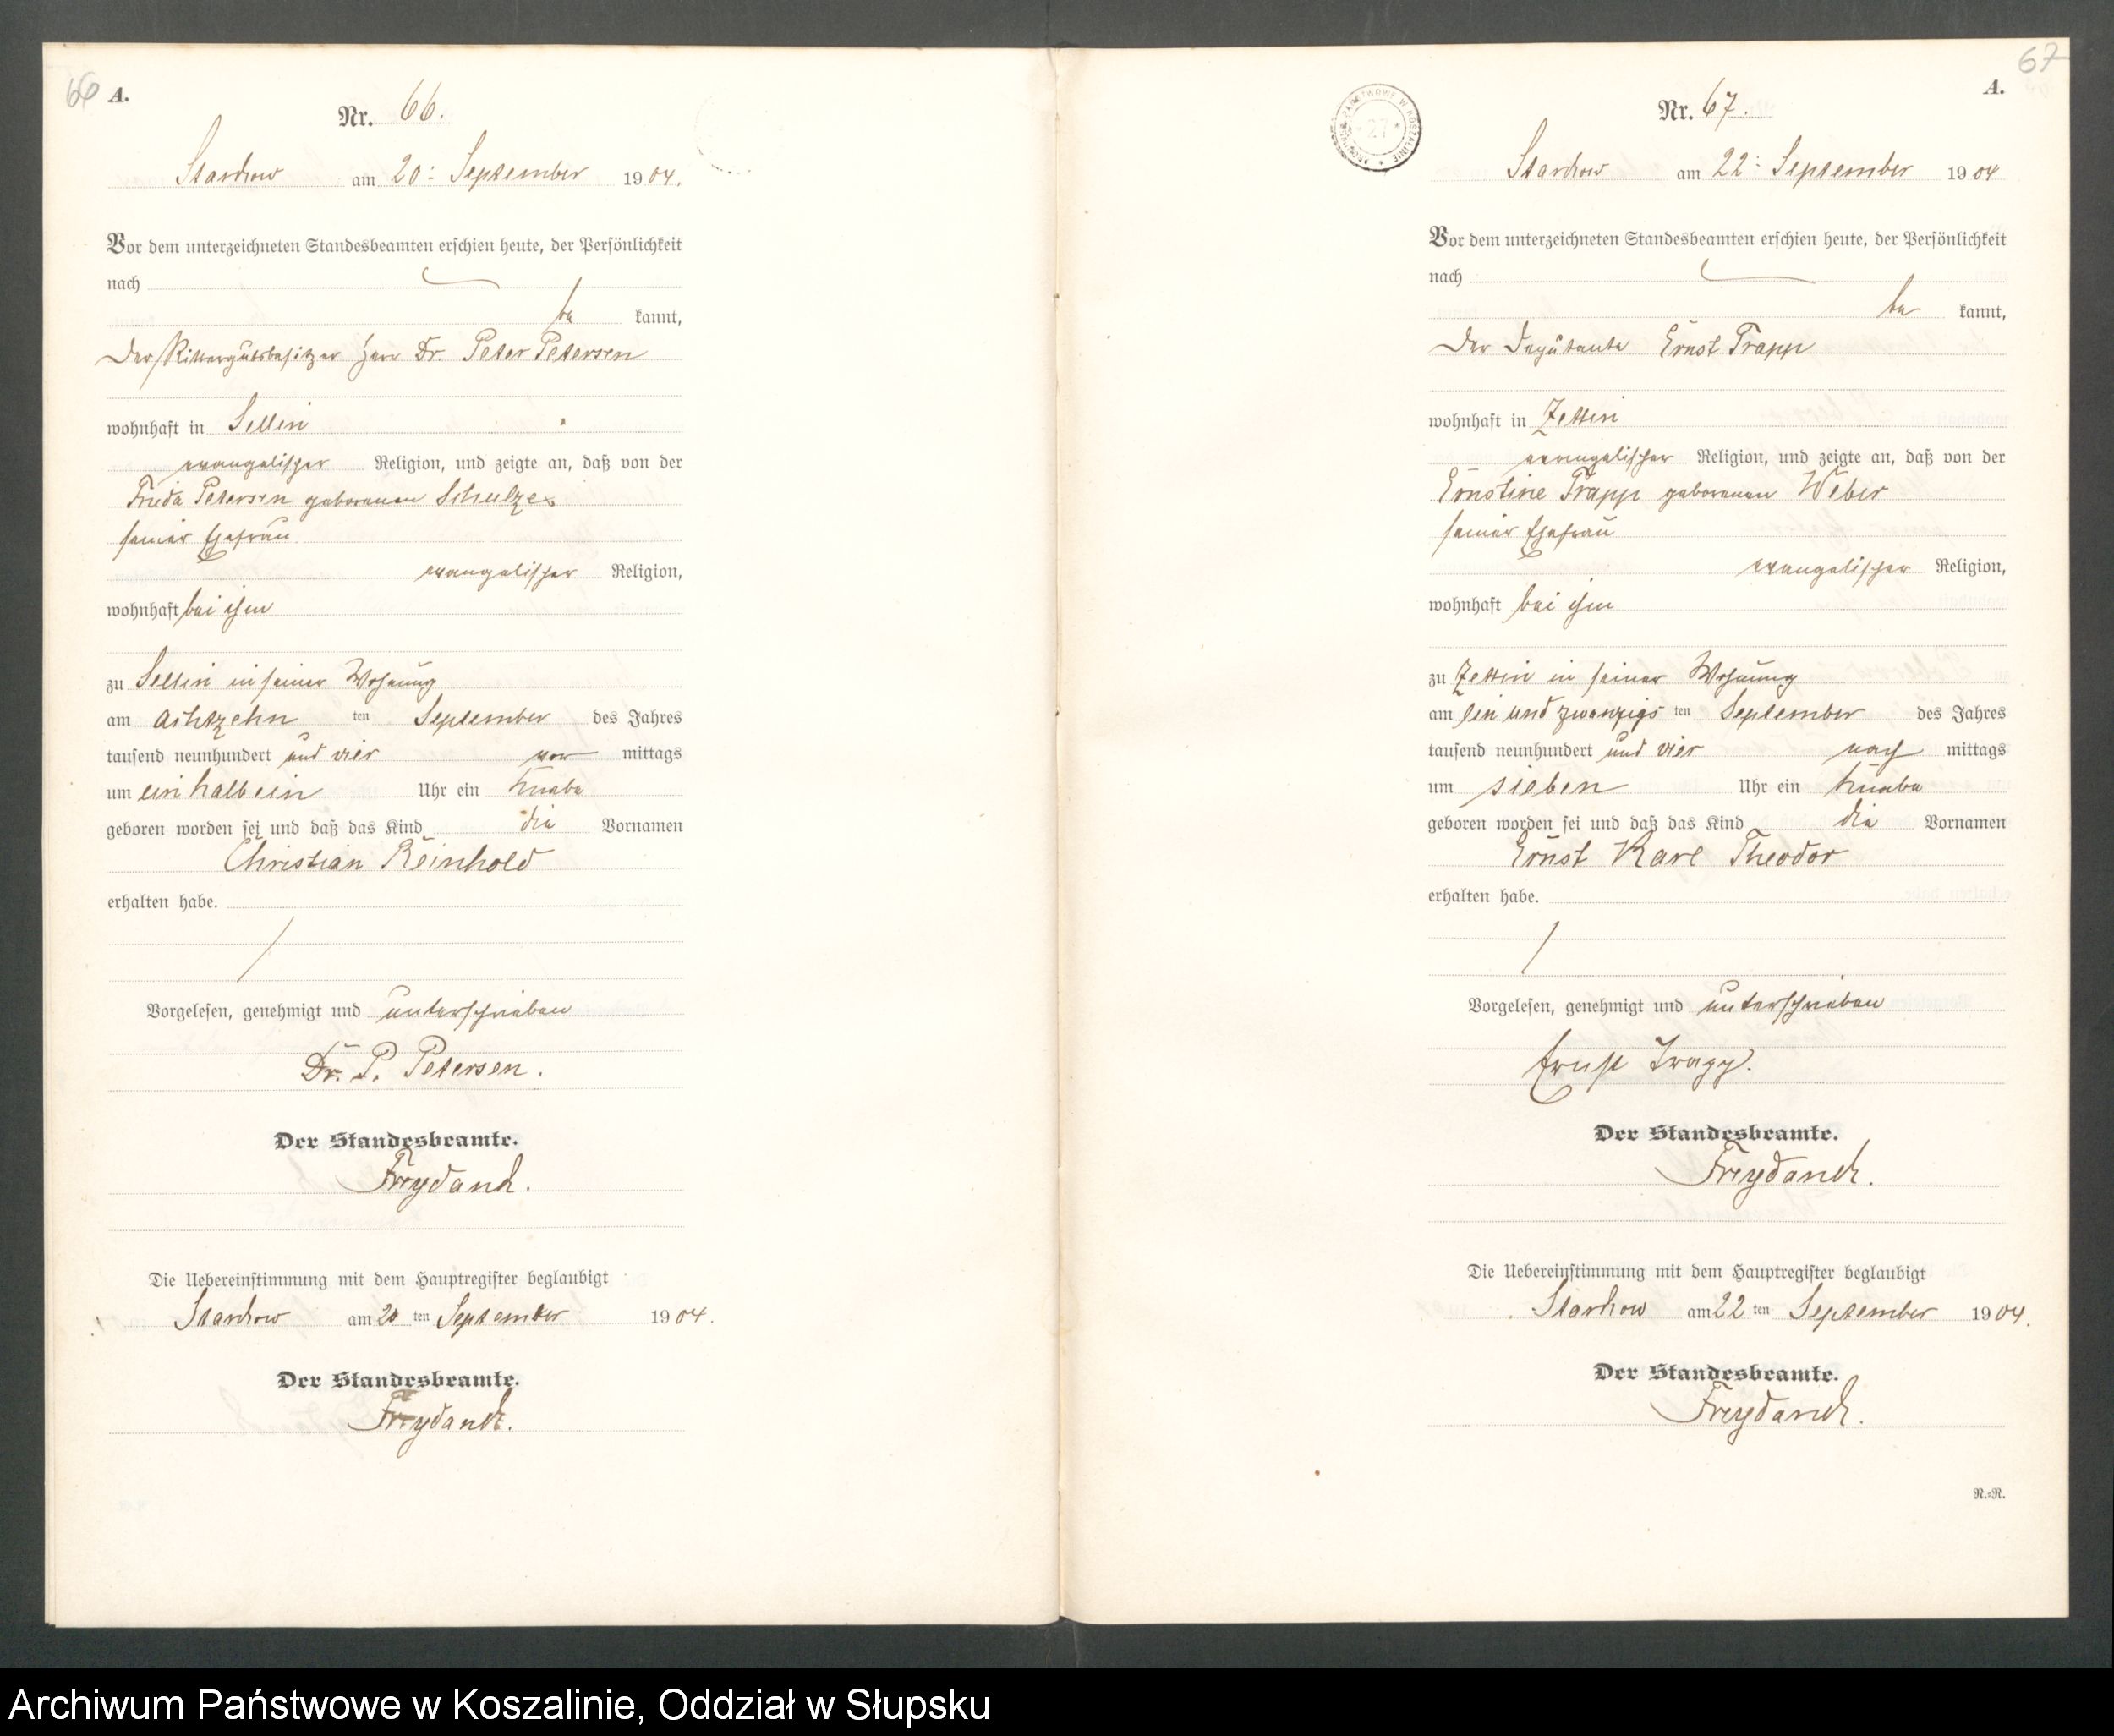 66 A.
Nr. 66.
Starckow am 20: September 1904.
Vor dem unterzeichneten Standesbeamten erschien heute, der Persönlichkeit
nach
be kannt,
der Rittergutsbesitzer Herr Dr. Peter Petersen
wohnhaft in Sellin
evangelischer Religion, und zeigte an, daß von der
Frieda Petersen geborenen Schulze
seiner Ehefrau
evangelischer Religion,
wohnhaft bei ihm
zu Sellin in seiner Wohnung
am achtzehn ten September des Jahres
tausend neunhundert und vier vor mittags
um ein halb ein Uhr ein Knabe
geboren worden sei und daß das Kind die Vornamen
Christian Reinhold
erhalten habe.
Vorgelesen, genehmigt und unterschrieben
Dr. P. Petersen.
Der Standesbeamte.
Freydanck.
Die Uebereinstimmung mit dem Hauptregister beglaubigt
Starckow am 20 ten September 1904.
Der Standesbeamte.
Freydanck.
67
A.
27
Nr. 67.
Starckow am 22: September 1904
Vor dem unterzeichneten Standesbeamten erschien heute, der Persönlichkeit
nach
be kannt,
der Deputante Ernst Trapp
wohnhaft in Zettin
evangelischer Religion, und zeigte an, daß von der
Ernstine Trapp geborenen Weber
seiner Ehefrau
evangelischer Religion,
wohnhaft bei ihm
zu Zettin in seiner Wohnung
am ein und zwanzigs ten September des Jahres
tausend neunhundert und vier nach mittags
um sieben Uhr ein Knabe
geboren worden sei und daß das Kind die Vornamen
Ernst Karl Theodor
erhalten habe.
Vorgelesen, genehmigt und unterschrieben
Ernst Trapp.
Der Standesbeamte.
Freydanck.
Die Uebereinstimmung mit dem Hauptregister beglaubigt
Starckow am 22 ten September 1904.
Der Standesbeamte.
Freydanck.
N.=N.
Archiwum Państwowe w Koszalinie, Oddział w Słupsku